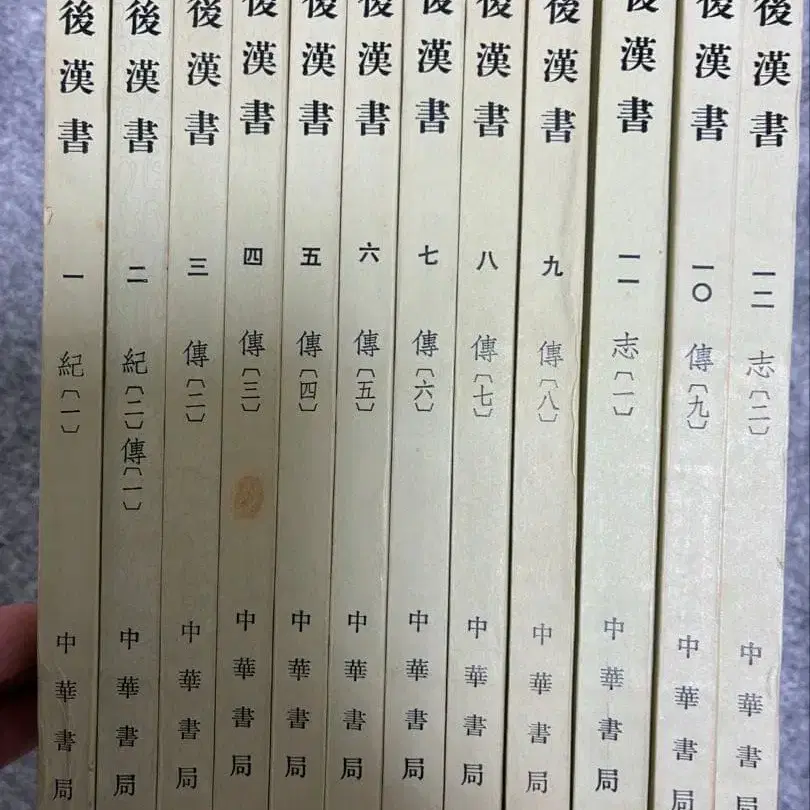 後漢書 一 紀〔一〕 中華書局
後漢書 二 紀〔二〕傳〔一〕 中華書局
後漢書 三 傳〔二〕 中華書局
後漢書 四 傳〔三〕 中華書局
後漢書 五 傳〔四〕 中華書局
後漢書 六 傳〔五〕 中華書局
後漢書 七 傳〔六〕 中華書局
後漢書 八 傳〔七〕 中華書局
後漢書 九 傳〔八〕 中華書局
後漢書 一一 志〔一〕 中華書局
後漢書 一〇 傳〔九〕 中華書局
後漢書 一二 志〔二〕 中華書局